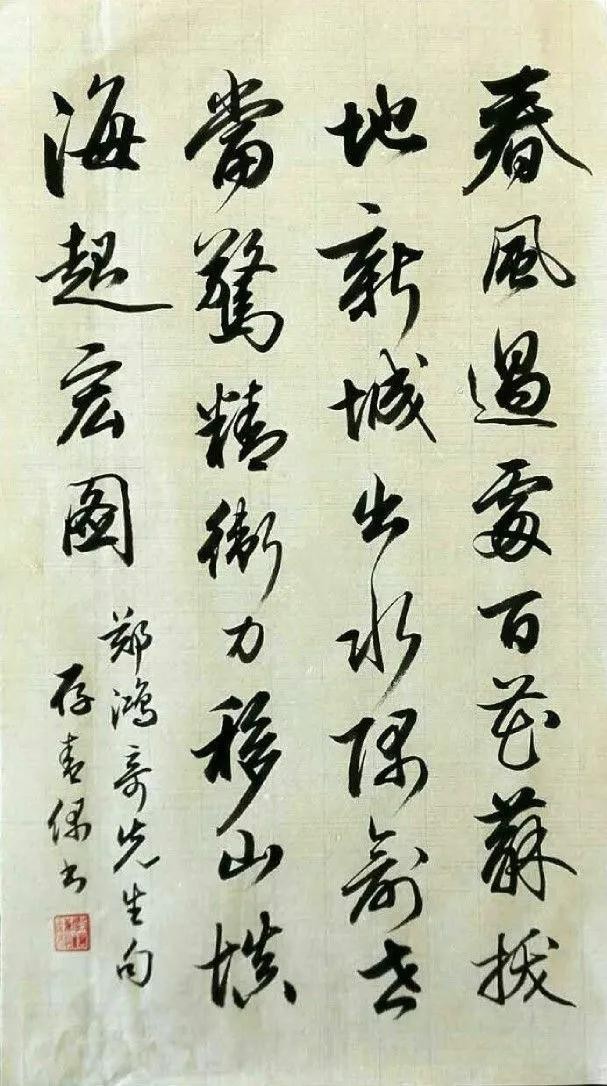 春風過處百花蘇拔
地新城出水隅創世
當驚精衛力移山填
海起宏圖
郑鴻奇先生句
存